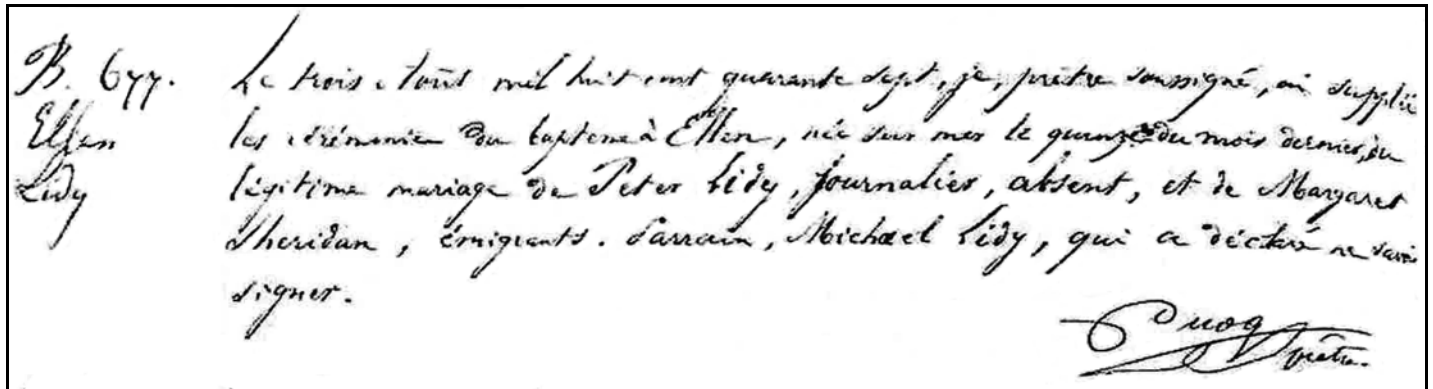 B. 677.
Ellen
Lidy
Le trois août mil huit cent quarante sept, je, prêtre soussigné, ai suppléé
les cérémonies du baptême à Ellen, née sur mer le quinze du mois dernier, du
légitime mariage de Peter Lidy, journalier, absent, et de Margaret
Sheridan, émigrants. Parrain, Michael Lidy, qui a déclaré ne savoir
signer.
Cuoq
prêtre.